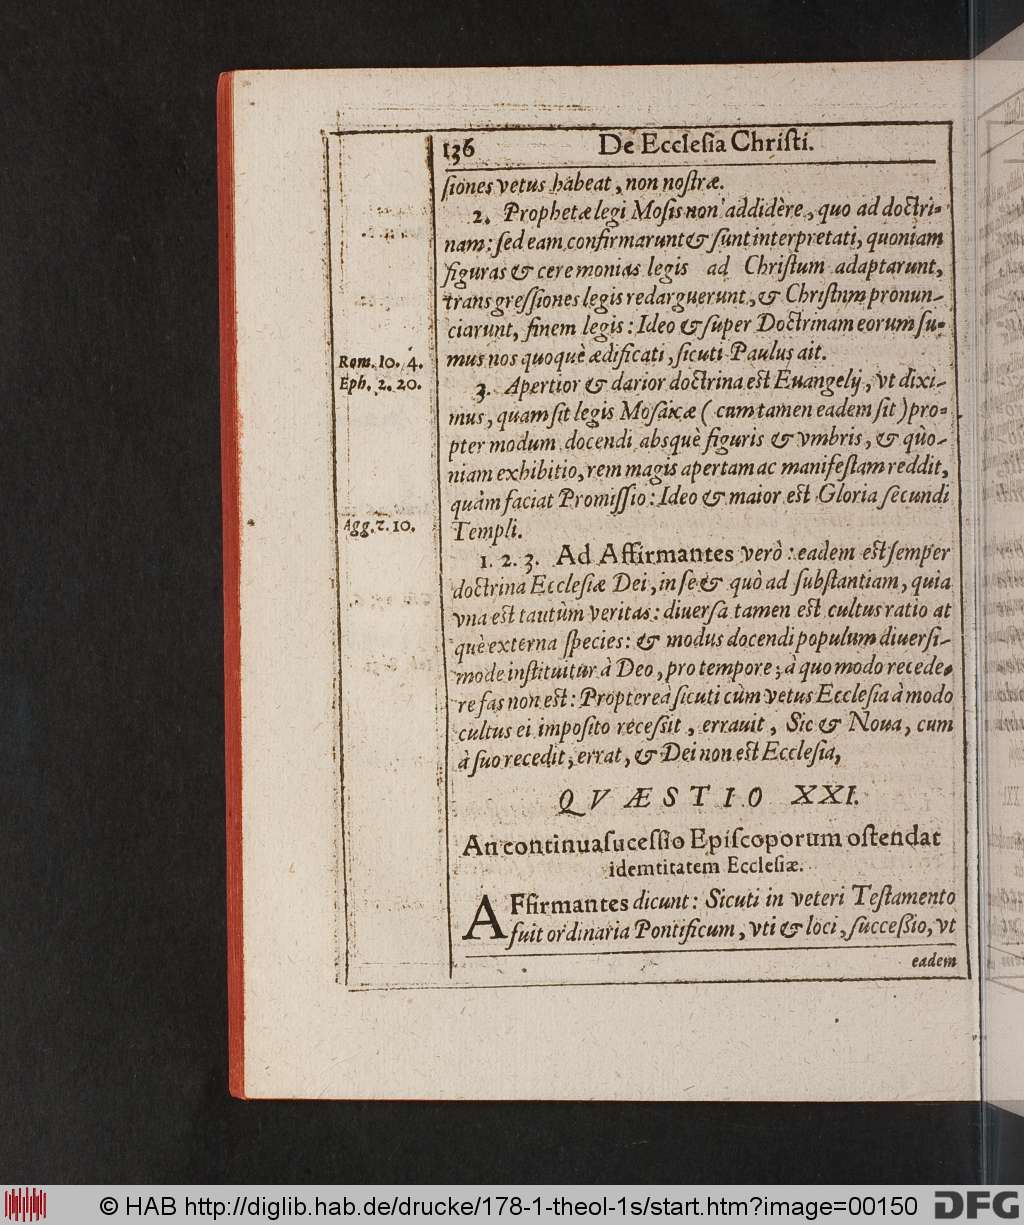 136 De Eccleſia Chriſti.
ſiones vetus habeat, non noſtræ.
2. Prophetæ legi Moſis non addidère, quo ad doctri-
nam: ſed eam confirmarunt & ſunt interpretati, quoniam
figuras & ceremonias legis ad Chriſtum adaptarunt,
transgreſſiones legis redarguerunt, & Chriſtnm pronun-
ciarunt, finem legis: Ideo & ſuper Doctrinam eorum ſu-
mus nos quoquè ædificati, ſicuti Paulus ait.
Rom. 10. 4.
Eph. 2. 20.
3. Apertior & darior doctrina eſt Euangelij, vt dixi-
mus, quam ſit legis Moſaicæ (cum tamen eadem ſit) pro-
pter modum docendi absquè figuris & vmbris, & qùo-
niam exhibitio, rem magis apertam ac manifeſtam reddit,
quàm faciat Promiſſio: Ideo & maior eſt Gloria ſecundi
Templi.
Agg. 2. 10.
1. 2. 3. Ad Affirmantes verò: eadem eſt ſemper
doctrina Eccleſiæ Dei, in ſe & quò ad ſubſtantiam, quia
vna eſt tautùm veritas: diuerſa tamen eſt cultus ratio at
què externa ſpecies: & modus docendi populum diuerſi-
mode inſtituitur à Deo, pro tempore; à quo modo recede-
re fas non eſt: Propterea ſicuti cùm vetus Eccleſia à modo
cultus ei impoſito receſsit, errauit, Sic & Noua, cum
à ſuo recedit, errat, & Dei non eſt Eccleſia,
QVÆSTIO XXI.
An continua ſuceſſio Epiſcoporum oſtendat
idemtitatem Eccleſiæ.
AFfirmantes dicunt: Sicuti in veteri Teſtamento
fuit ordinaria Pontificum, vti & loci, ſucceſsio, vt
eadem
© HAB http://diglib.hab.de/drucke/178-1-theol-1s/start.htm?image=00150
DFG